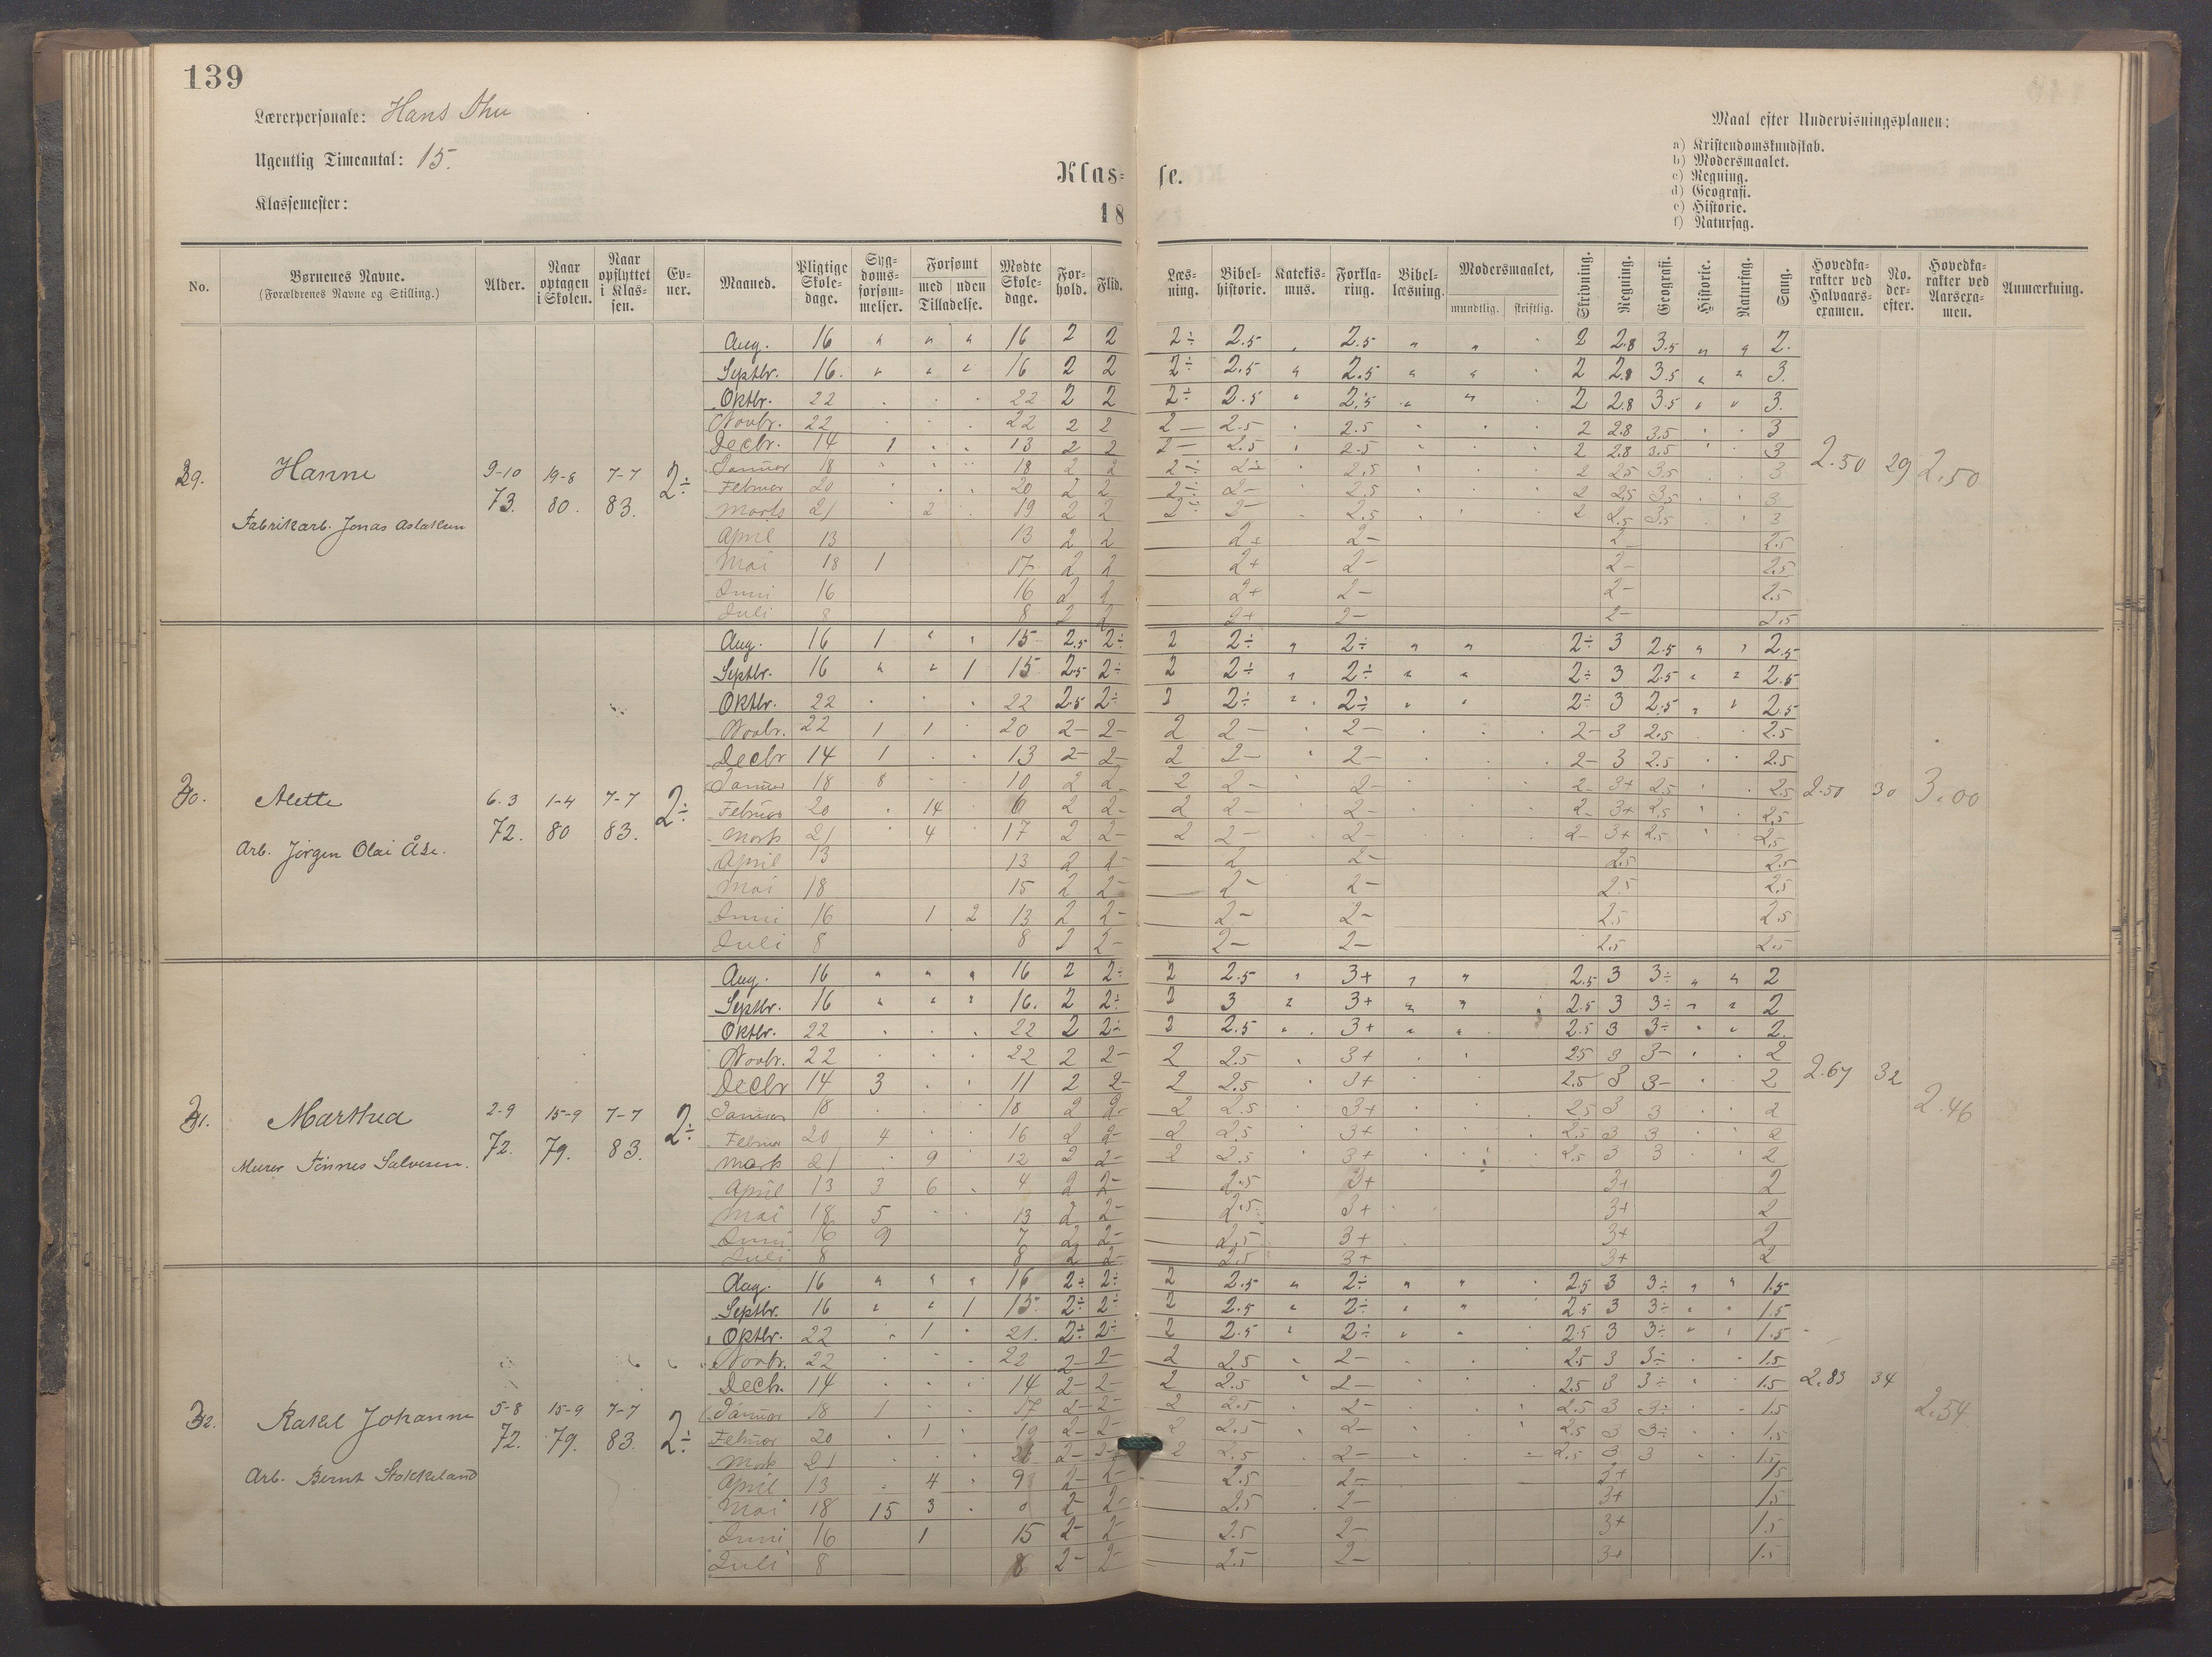 139
Lærerpersonale: Hans Thu
Ugentlig Timeantal: 15.
Klassemester:
Klas= se.
18
Maal efter Undervisningsplanen:
a) Kristendomskundskab.
b) Modersmaalet.
c) Regning.
d) Geografi.
e) Historie.
f) Naturfag.
No. Børnenes Navne. (Forældrenes Navne og Stilling.) Alder. Naar optagen i Skolen. Naar opflyttet i Klas- sen. Ev- ner. Maaned. Pligtige Skole- dage. Syg- doms- forsøm- melser. Forsømt med uden Tilladelse. Mødte Skole- dage. For- hold. Flid. Læs- ning. Bibel- historie. Katekis- mus. Forkla- ring. Bibel- læsning. Modersmaalet, mundtlig. skriftlig. Skrivning. Regning. Geografi. Historie. Naturfag. Sang. Hovedka- rakter ved Halvaars- examen. No. der- efter. Hovedka- rakter ved Aarsexa- men. Anmærkning.
29. Hanne 9-10 73. 19-8 80. 7-7 83. 2÷
Fabrikarb. Jonas Aslaksen
Aug. 16 " " " 16 2 2 2÷ 2.5 " 2.5 " " 2 2.8 3.5 " " 2.
Septbr. 16. " " " 16 2 2 2÷ 2.5 " 2.5 " " 2 2.8 3.5 " " 3.
Oktbr. 22 . . . 22 2 2 2÷ 2.5 " 2.5 " " 2 2.8 3.5 " " 3.
Novbr. 22 . . . 22 2 2 2- 2.5 . 2.5 . . 2 2.8 3.5 . . 3
Decbr. 14 1 . . 13 2 2 2- 2.5 . 2.5 . . 2 2.8 3.5 . . 3
Januar 18 . . . 18 2 2 2÷ 2÷ . 2.5 . . 2 2.5 3.5 3
Februar 20 . . . 20 2 2 2÷ 2- . 2.5 . . 2 2.5 3.5 . . 3
Marts 21 . 2 . 19 2 2 2÷ 2- . 2.5 . . 2 2.5 3.5 . . 3
April 13 13 2 2 2+ 2- 2- 2.5
Mai 18 1 17 2 2 2+ 2- 2- 2.5
Juni 16 16 2 2 2+ 2- 2- 2.5
Juli 8 8 2 2 2+ 2- 2- 2.5
2.50 29 2.50
30. Alette 6.3 72. 1-4 80 7-7 83. 2÷
Arb. Jörgen Olai Åse.
Aug. 16 1 " " 15 2.5 2÷ 2 2÷ " 2÷ " " 2÷ 3 2.5 " " 2.5
Septbr. 16 " " 1 15 2.5 2÷ 2 2÷ " 2÷ " " 2÷ 3 2.5 " " 2.5
Oktbr. 22 . . . 22 2.5 2÷ 2 2÷ " 2÷ " " 2÷ 3 2.5 " " 2.5
Novbr. 22 1 1 . 20 2- 2- 2 2- . 2- . . 2- 3 2.5 . . 2.5
Decbr 14 1 . . 13 2- 2- 2 2- . 2- . . 2- 3 2.5 . . 2.5
Januar 18 8 . . 10 2 2- 2 2- . 2- . . 2- 3+ 2.5 . . 2.5
Februar 20 . 14 6 2 2- 2 2- . 2- . . 2- 3+ 2.5 . . 2.5
Marts 21 . 4 . 17 2 2- 2 2- . 2- . . 2- 3+ 2.5 . . 2.5
April 13 13 2 2- 2 2- 2.5 2.5
Mai 18 15 2 2- 2- 2- 2.5 2.5
Juni 16 1 2 13 2 2- 2- 2- 2.5 2.5
Juli 8 8 2 2- 2- 2- 2.5 2.5
2.50 30 3.00
31. Marthea 2-9 72. 15-9 79. 7-7 83. 2÷
Murer Tönnes Salvesen.
Aug. 16 " " " 16 2 2÷ 2 2.5 " 3+ " " 2.5 3 3÷ " " 2
Septbr. 16 " " " 16. 2 2÷ 2 3 " 3+ " " 2.5 3 3÷ " " 2
Oktbr. 22 . . . 22 2 2÷ 2 2.5 " 3+ " " 2.5 3 3÷ " " 2.
Novbr. 22 . . . 22 2 2- 2 2.5 . 3+ . . 2.5 3 3- . . 2
Decbr 14 3 . . 11 2 2- 2 2.5 . 3+ . . 2.5 3 3- . . 2
Januar 18 . . . 18 2 2- 2 2.5 . 3+ . . 2.5 3 3 . . 2
Februar 20 4 . . 16 2 2- 2 2.5 . 3+ . . 2.5 3 3 . . 2
Marts 21 . 9 12 2 2- 2 2.5 . 3+ . . 2.5 3 3 . . 2
April 13 3 6 . 4 2 2- 2.5 3+ 3+ 2
Mai 18 5 . . 13 2 2- 2.5 3+ 3+ 2
Juni 16 9 7 2 2- 2.5 3+ 3+ 2
Juli 8 8 2 2- 2.5 3+ 3+ 2
2.67 32 2.46
32. Rakel Johanne 5-8 72. 15-9 79. 7-7 83. 2÷
Arb. Bernt Stokkeland
Aug. 16 " " " 16 2÷ 2÷ 2 2.5 " 2÷ " " 2.5 3 3÷ " " 1.5
Septbr. 16 " " 1 15. 2÷ 2÷ 2 2.5 " 2÷ " " 2.5 3 3÷ " " 1.5
Oktbr. 22 . 1 . 21. 2÷ 2÷ 2 2.5 " 2÷ " " 2.5 3 3÷ " " 1.5
Novbr. 22 . . . 22 2- 2- 2 2.5 . 2- . . 2.5 3 3÷ . . 1.5
Decbr. 14 . . . 14 2- 2- 2 2.5 . 2- . . 2.5 3 3÷ . . 1.5
Januar 18 1 . . 17 2- 2- 2 2.5 . 2- . . 2.5 3 3÷ . . 1.5
Februar 20 . 1 . 19 2- 2- 2 2.5 . 2- . . 2.5 3 3÷ . . 1.5
Marts 21 . . . 2- 2- 2 2.5 . 2- . . 2.5 3 3 . . 1.5
April 13 . 4 . 9 2- 2- 2.5 2- 3+ 1.5
Mai 18 15 3 . 0 2- 2- 2.5 2- 3+ 1.5
Juni 16 1 15 2- 2- 2.5 2- 3+ 1.5
Juli 8 8 2- 2- 2.5 2- 3+ 1.5
2.83 34 2.54